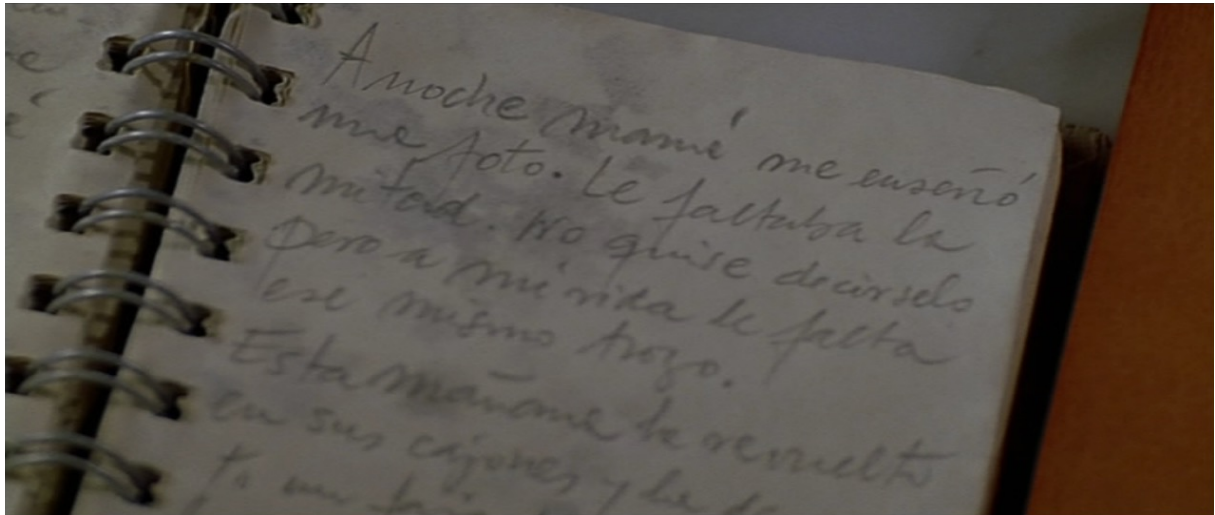 Anoche mamá me enseñó
una foto. Le faltaba la
mitad. No quise decírselo
pero a mi vida le falta
ese mismo trozo.
Esta mañana he revuelto
en sus cajones y he